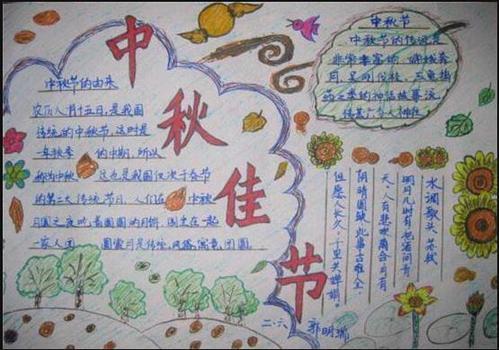 中秋佳节
中秋节的由来
农历八月十五日,是我国
传统的中秋节,这时是
一年秋季的中期,所以
称为中秋 这也是我国仅次于春节
的第二大传统节日,人们在中秋
月圆之夜时,圆圆的月饼,围坐在一起
一家人
中秋节
中秋节的传说是
非常丰富的,嫦娥奔
月,吴刚伐桂,玉兔捣
药之类的神话故事流
传甚广
水调歌头 苏轼
明月几时有,把酒问青
天,人有悲欢离合,月有
阴晴圆缺,此事古难全.
但愿人长久,千里共婵娟.
二.六 郭明